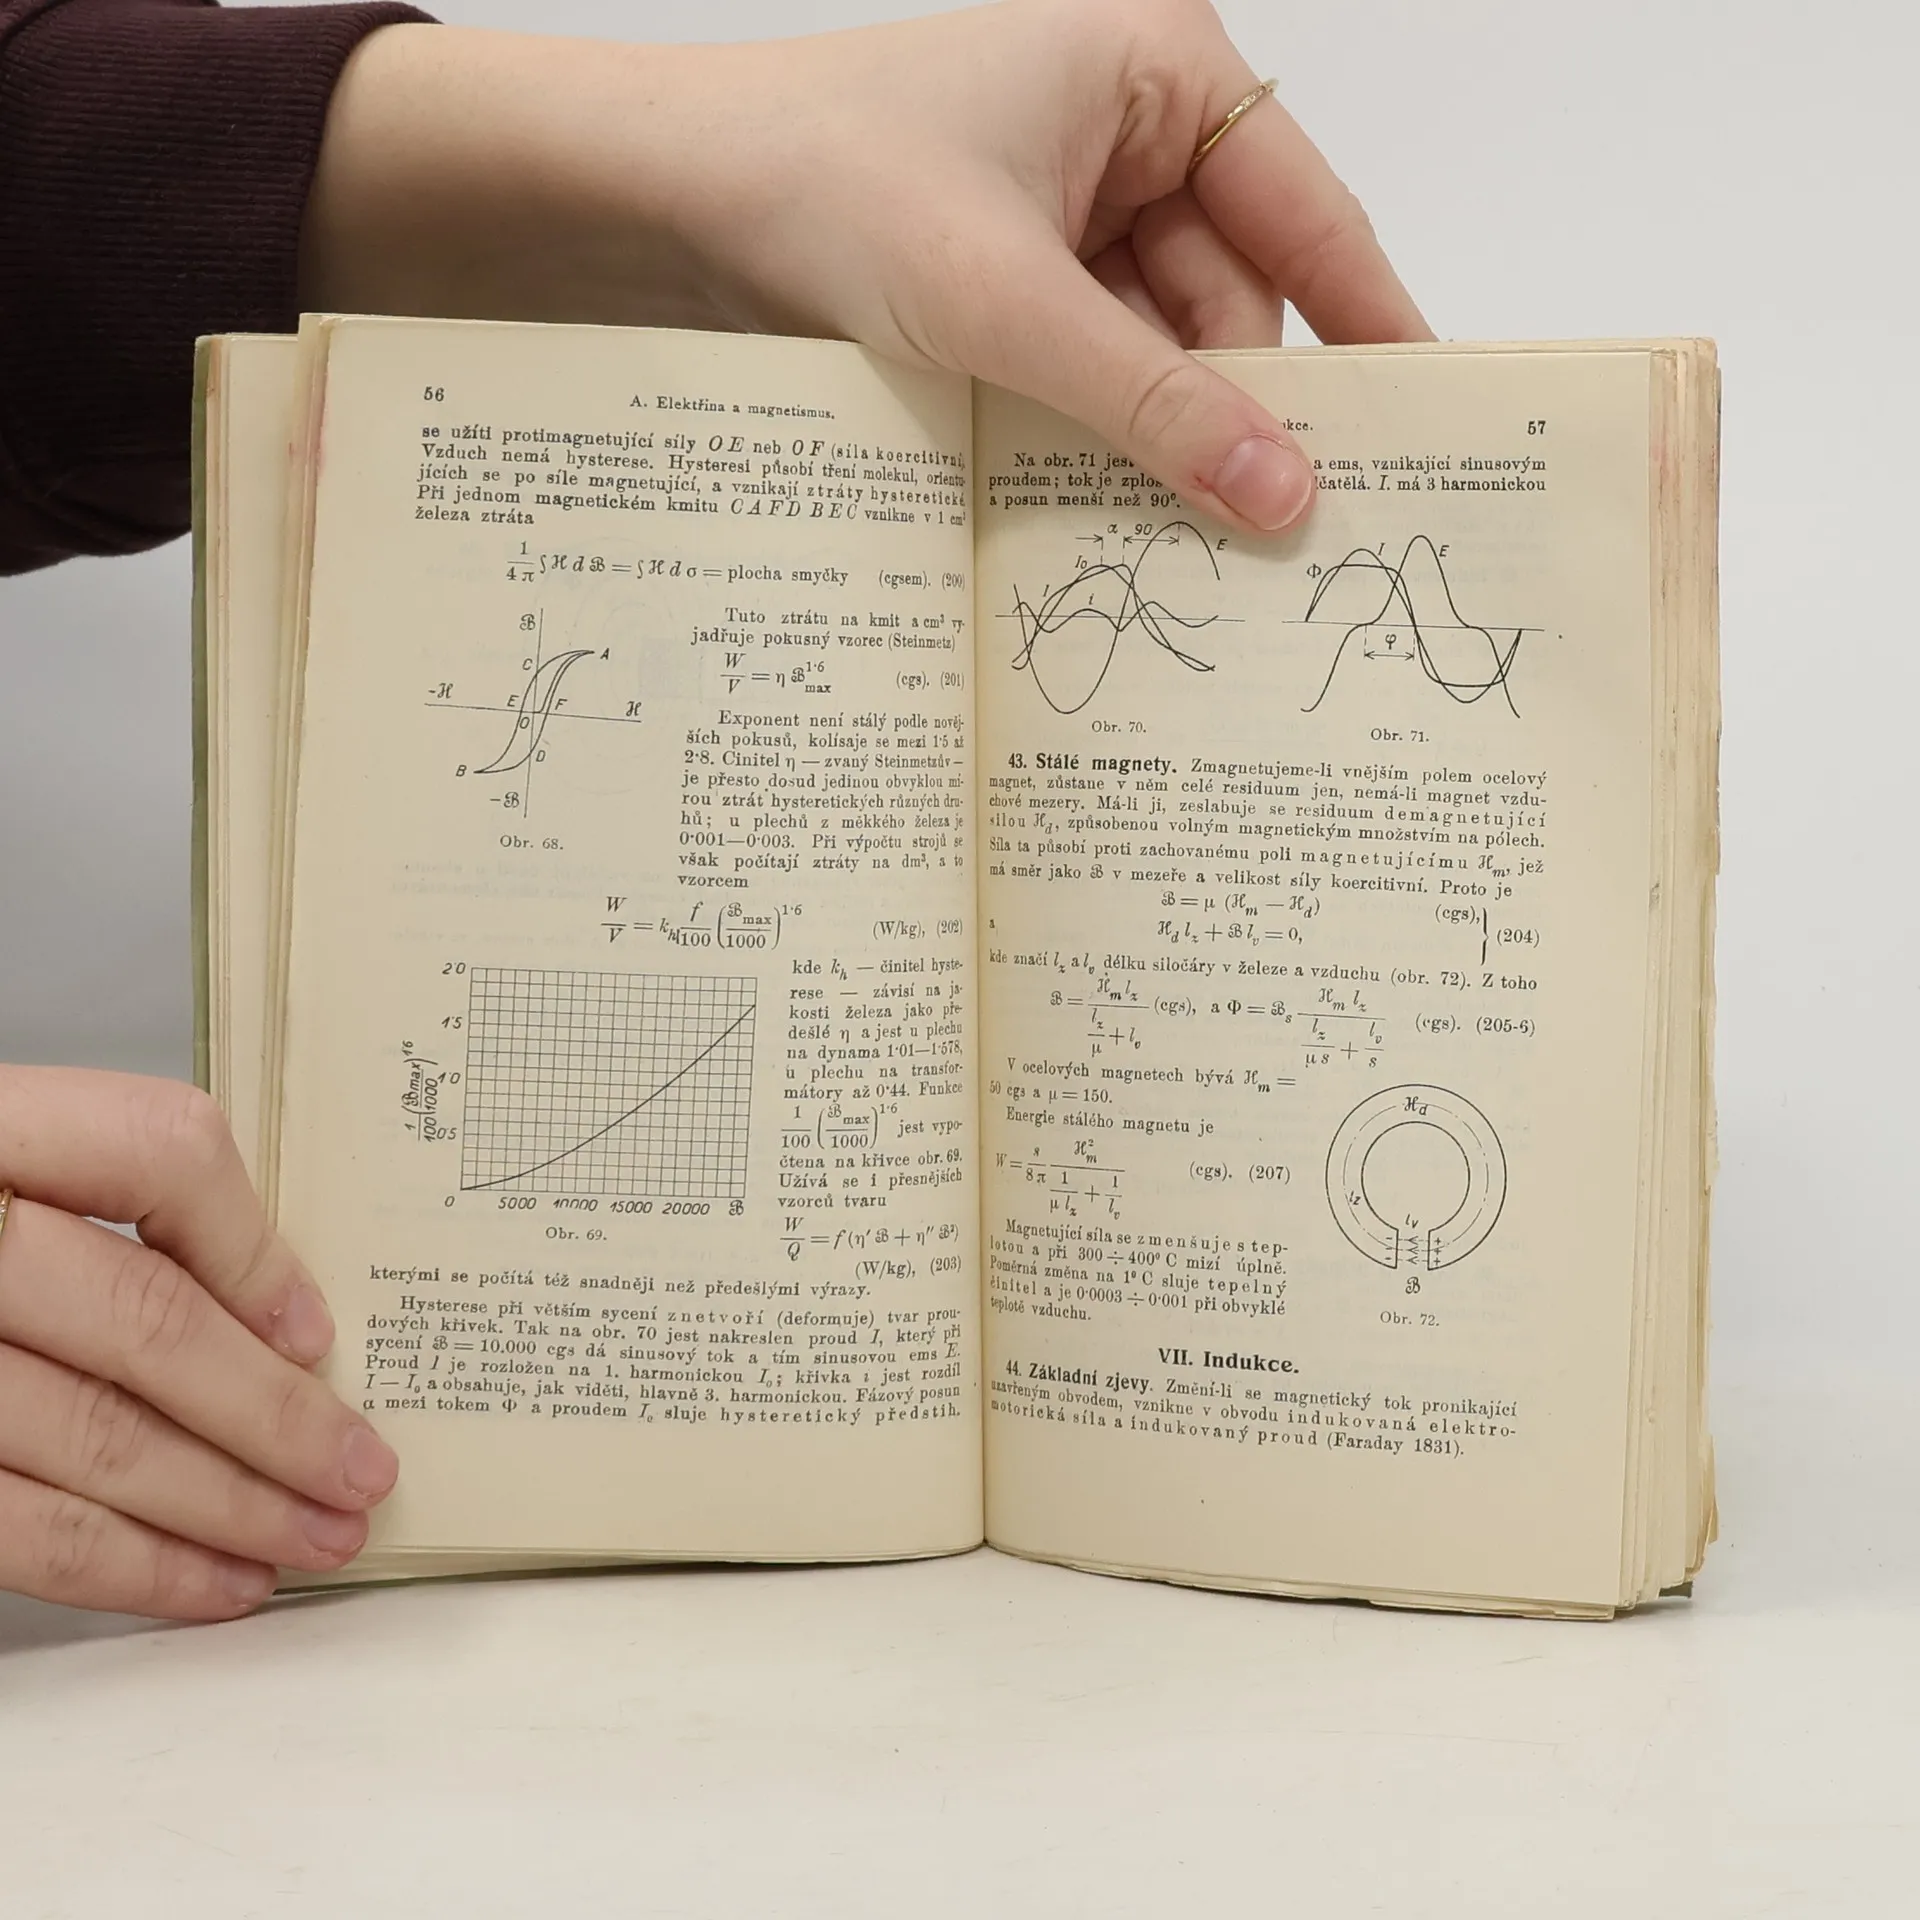 56
A. Elektřina a magnetismus.
se užíti protimagnetující síly O E neb O F (síla koercitivní)
Vzduch nemá hysterese. Hysteresi působí tření molekul, orientu-
jících se po síle magnetující, a vznikají ztráty hysteretické.
Při jednom magnetickém kmitu C A F D B E C vznikne v 1 cm³
železa ztráta
1/4π ∫ ℋ d ℬ = ∫ ℋ d σ = plocha smyčky (cgsem). (200)
ℬ
C
A
-ℋ
E
F
ℋ
O
D
B
-ℬ
Obr. 68.
Tuto ztrátu na kmit a cm³ vy-
jadřuje pokusný vzorec (Steinmetz)
W/V = η ℬ max 1·6 (cgs). (201)
Exponent není stálý podle nověj-
ších pokusů, kolísaje se mezi 1·5 až
2·8. Činitel η — zvaný Steinmetzův —
je přesto dosud jedinou obvyklou mí-
rou ztrát hysteretických různých dru-
hů; u plechů z měkkého železa je
0·001—0·003. Při výpočtu strojů se
však počítají ztráty na dm³, a to
vzorcem
W/V = k_h f/100 (ℬ max/1000)1·6 (W/kg), (202)
2·0
1·5
1·0
0·5
0
1/100 (ℬmax/1000)1·6
5000 10000 15000 20000 ℬ
Obr. 69.
kde k_h — činitel hyste-
rese — závisí na ja-
kosti železa jako pře-
dešlé η a jest u plechu
na dynama 1·01—1·578,
u plechu na transfor-
mátory až 0·44. Funkce
1/100 (ℬ max/1000)1·6 jest vypo-
čtena na křivce obr. 69.
Užívá se i přesnějších
vzorců tvaru
W/Q = f (η′ ℬ + η″ ℬ²)
(W/kg), (203)
kterými se počítá též snadněji než předešlými výrazy.
Hysterese při větším sycení znetvoří (deformuje) tvar prou-
dových křivek. Tak na obr. 70 jest nakreslen proud I, který při
sycení ℬ = 10.000 cgs dá sinusový tok a tím sinusovou ems E.
Proud I je rozložen na 1. harmonickou I₀; křivka i jest rozdíl
I — I₀ a obsahuje, jak viděti, hlavně 3. harmonickou. Fázový posun
α mezi tokem Φ a proudem I₀ sluje hysteretický předstih.
ukce.
57
Na obr. 71 jest a ems, vznikající sinusovým
proudem; tok je I. má 3 harmonickou
a posun menší než 90°.
α 90
I₀
E
I
i
Obr. 70.
Φ
I
E
φ
Obr. 71.
43. Stálé magnety. Zmagnetujeme-li vnějším polem ocelový
magnet, zůstane v něm celé residuum jen, nemá-li magnet vzdu-
chové mezery. Má-li ji, zeslabuje se residuum demagnetující
silou ℋ_d, způsobenou volným magnetickým množstvím na pólech.
Síla ta působí proti zachovanému poli magnetujícímu ℋ_m, jež
má směr jako ℬ v mezeře a velikost síly koercitivní. Proto je
ℬ = μ (ℋ_m — ℋ_d) (cgs),
a ℋ_d l_z + ℬ l_v = 0, (204)
kde značí l_z a l_v délku siločáry v železe a vzduchu (obr. 72). Z toho
ℬ = ℋ_m l_z / (l_z/μ + l_v) (cgs), a Φ = ℬ_s ℋ_m l_z / (l_z/μ s + l_v/s) (cgs). (205-6)
V ocelových magnetech bývá ℋ_m =
50 cgs a μ = 150.
Energie stálého magnetu je
W = s/8π ℋ²_m / (1/μ l_z + 1/l_v) (cgs). (207)
Magnetující síla se zmenšuje s tep-
lotou a při 300 ÷ 400° C mizí úplně.
Poměrná změna na 1° C sluje tepelný
činitel a je 0·0003 ÷ 0·001 při obvyklé
teplotě vzduchu.
ℋd
lz
lv
- +
- +
- +
ℬ
Obr. 72.
VII. Indukce.
44. Základní zjevy. Změní-li se magnetický tok pronikající
uzavřeným obvodem, vznikne v obvodu indukovaná elektro-
motorická síla a indukovaný proud (Faraday 1831).